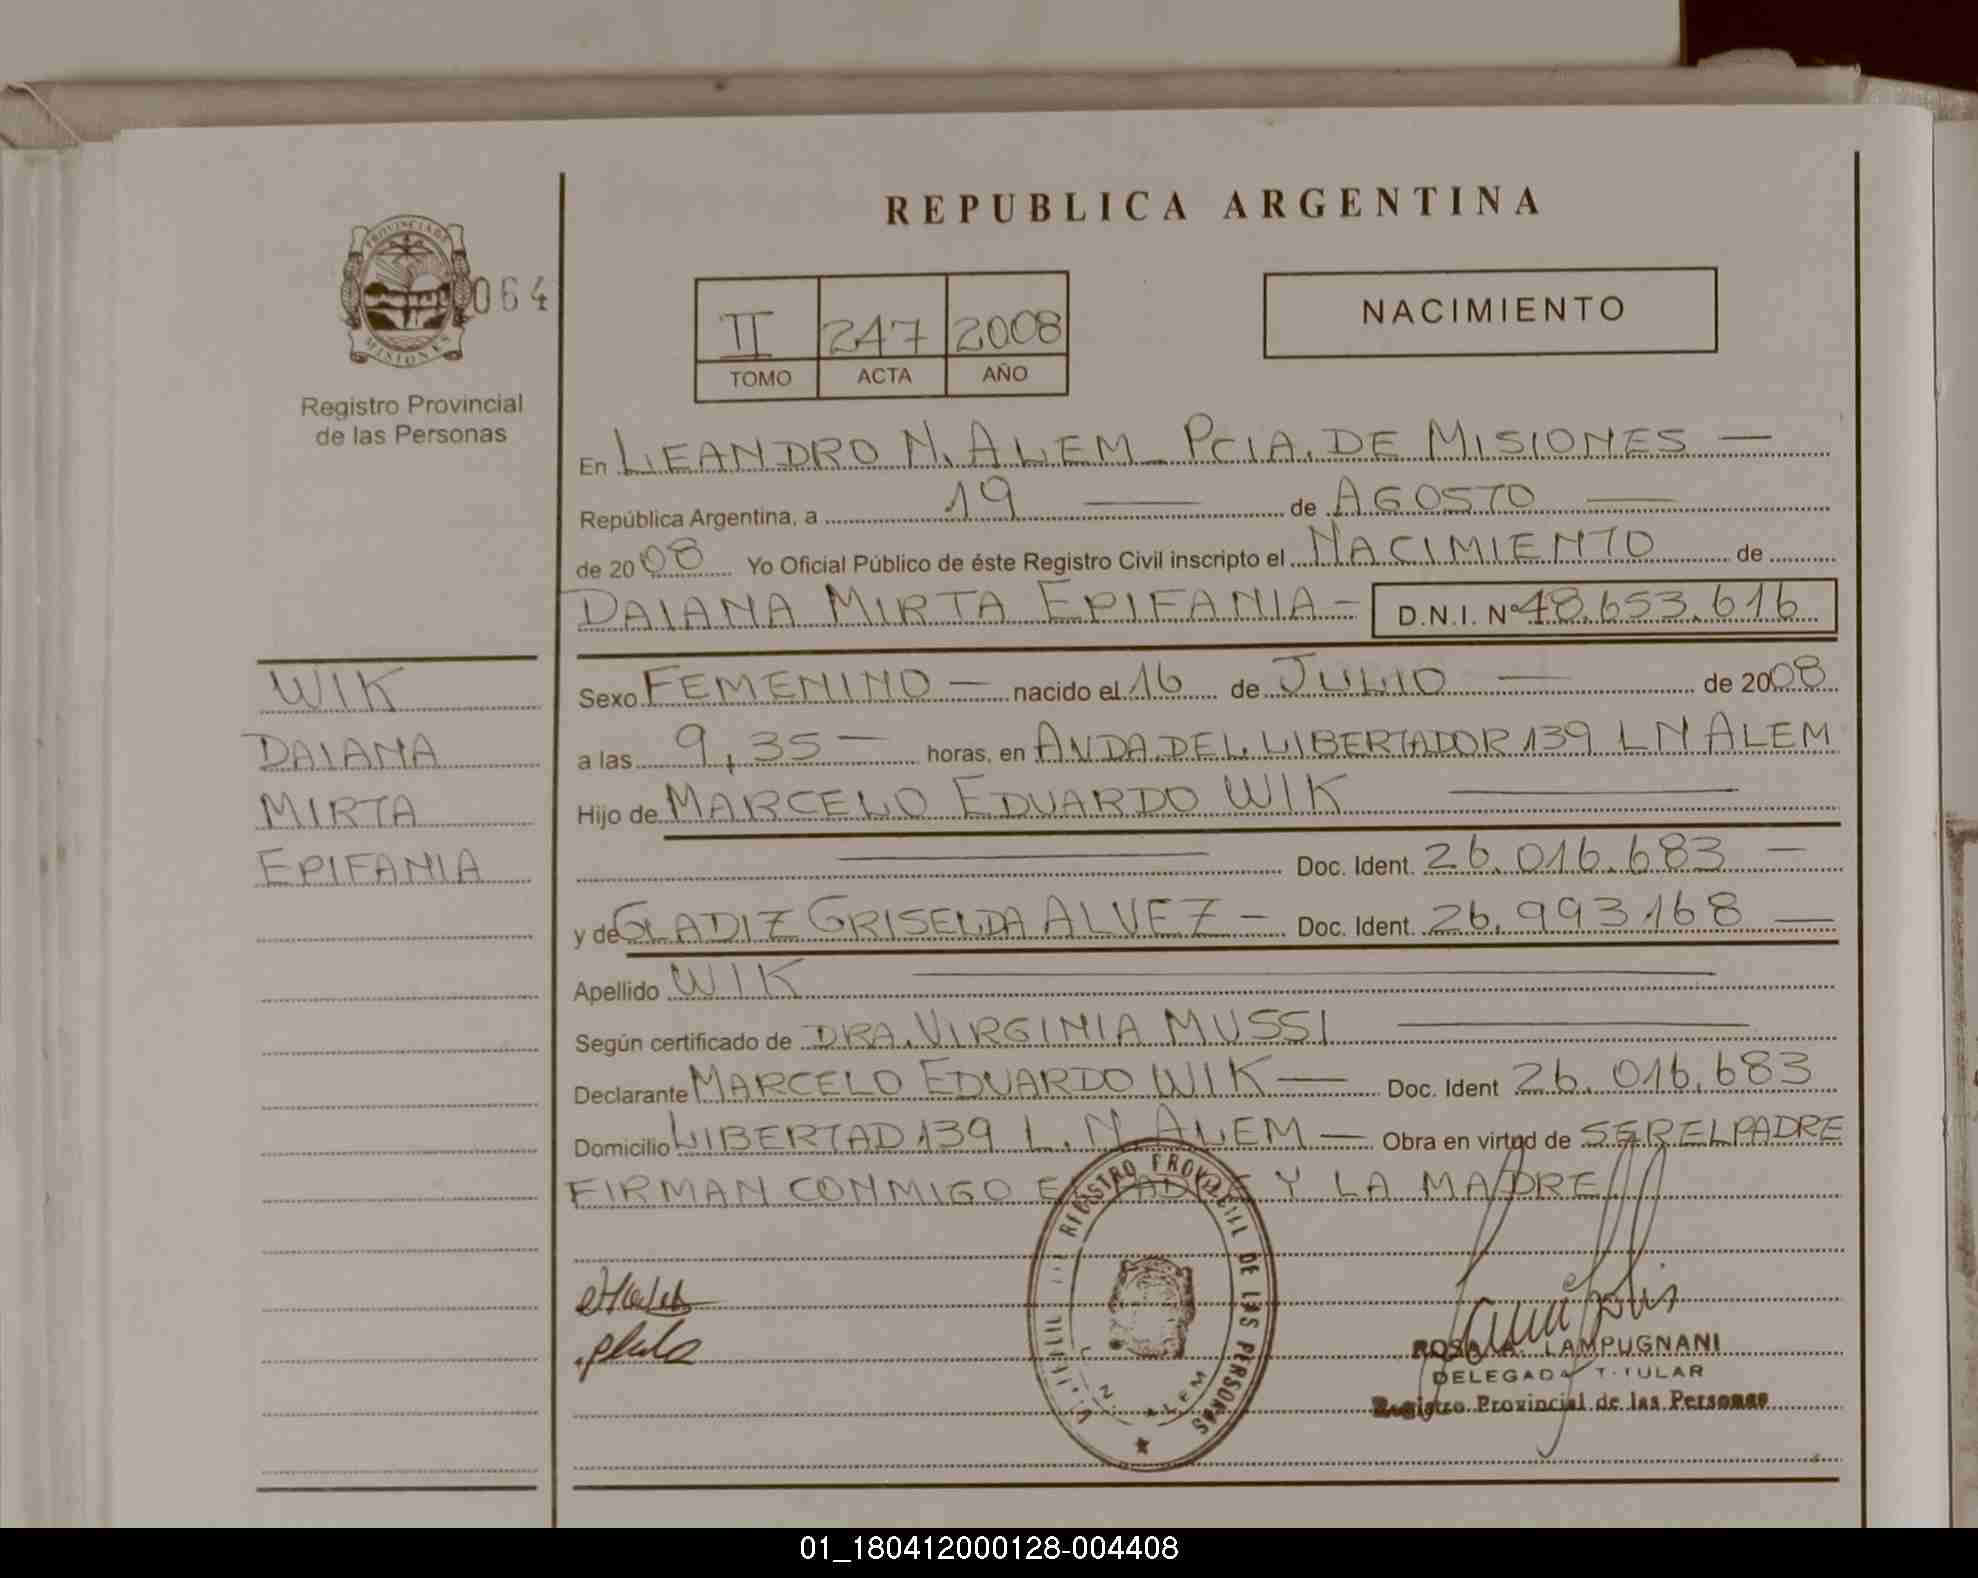 REPUBLICA ARGENTINA
PROVINCIA DE MISIONES
064
Registro Provincial
de las Personas
II 247 2008
TOMO ACTA AÑO
NACIMIENTO
En LEANDRO N. ALEM - PCIA. DE MISIONES —
República Argentina, a 19 — de AGOSTO —
de 2008 Yo Oficial Público de éste Registro Civil inscripto el NACIMIENTO de
DAIANA MIRTA EPIFANIA - D.N.I. Nº 48.653.616
WIK
DAIANA
MIRTA
EPIFANIA
Sexo FEMENINO — nacido el 16 de JULIO — de 2008
a las 9,35 — horas, en AVDA.DEL.LIBERTADOR 139 L N ALEM
Hijo de MARCELO EDUARDO WIK —
— Doc. Ident. 26.016.683 —
y de GLADIZ GRISELDA ALVEZ - Doc. Ident. 26.993168 —
Apellido WIK —
Según certificado de DRA. VIRGINIA MUSSI —
Declarante MARCELO EDUARDO WIK — Doc. Ident 26.016.683
Domicilio LIBERTAD 139 L.N.ALEM — Obra en virtud de SER EL PADRE
FIRMAN CONMIGO EL PADRE Y LA MADRE
REGISTRO PROVINCIAL DE LAS PERSONAS
L. N. ALEM
ROSA A. LAMPUGNANI
DELEGADA TITULAR
Registro Provincial de las Personas
01_180412000128-004408